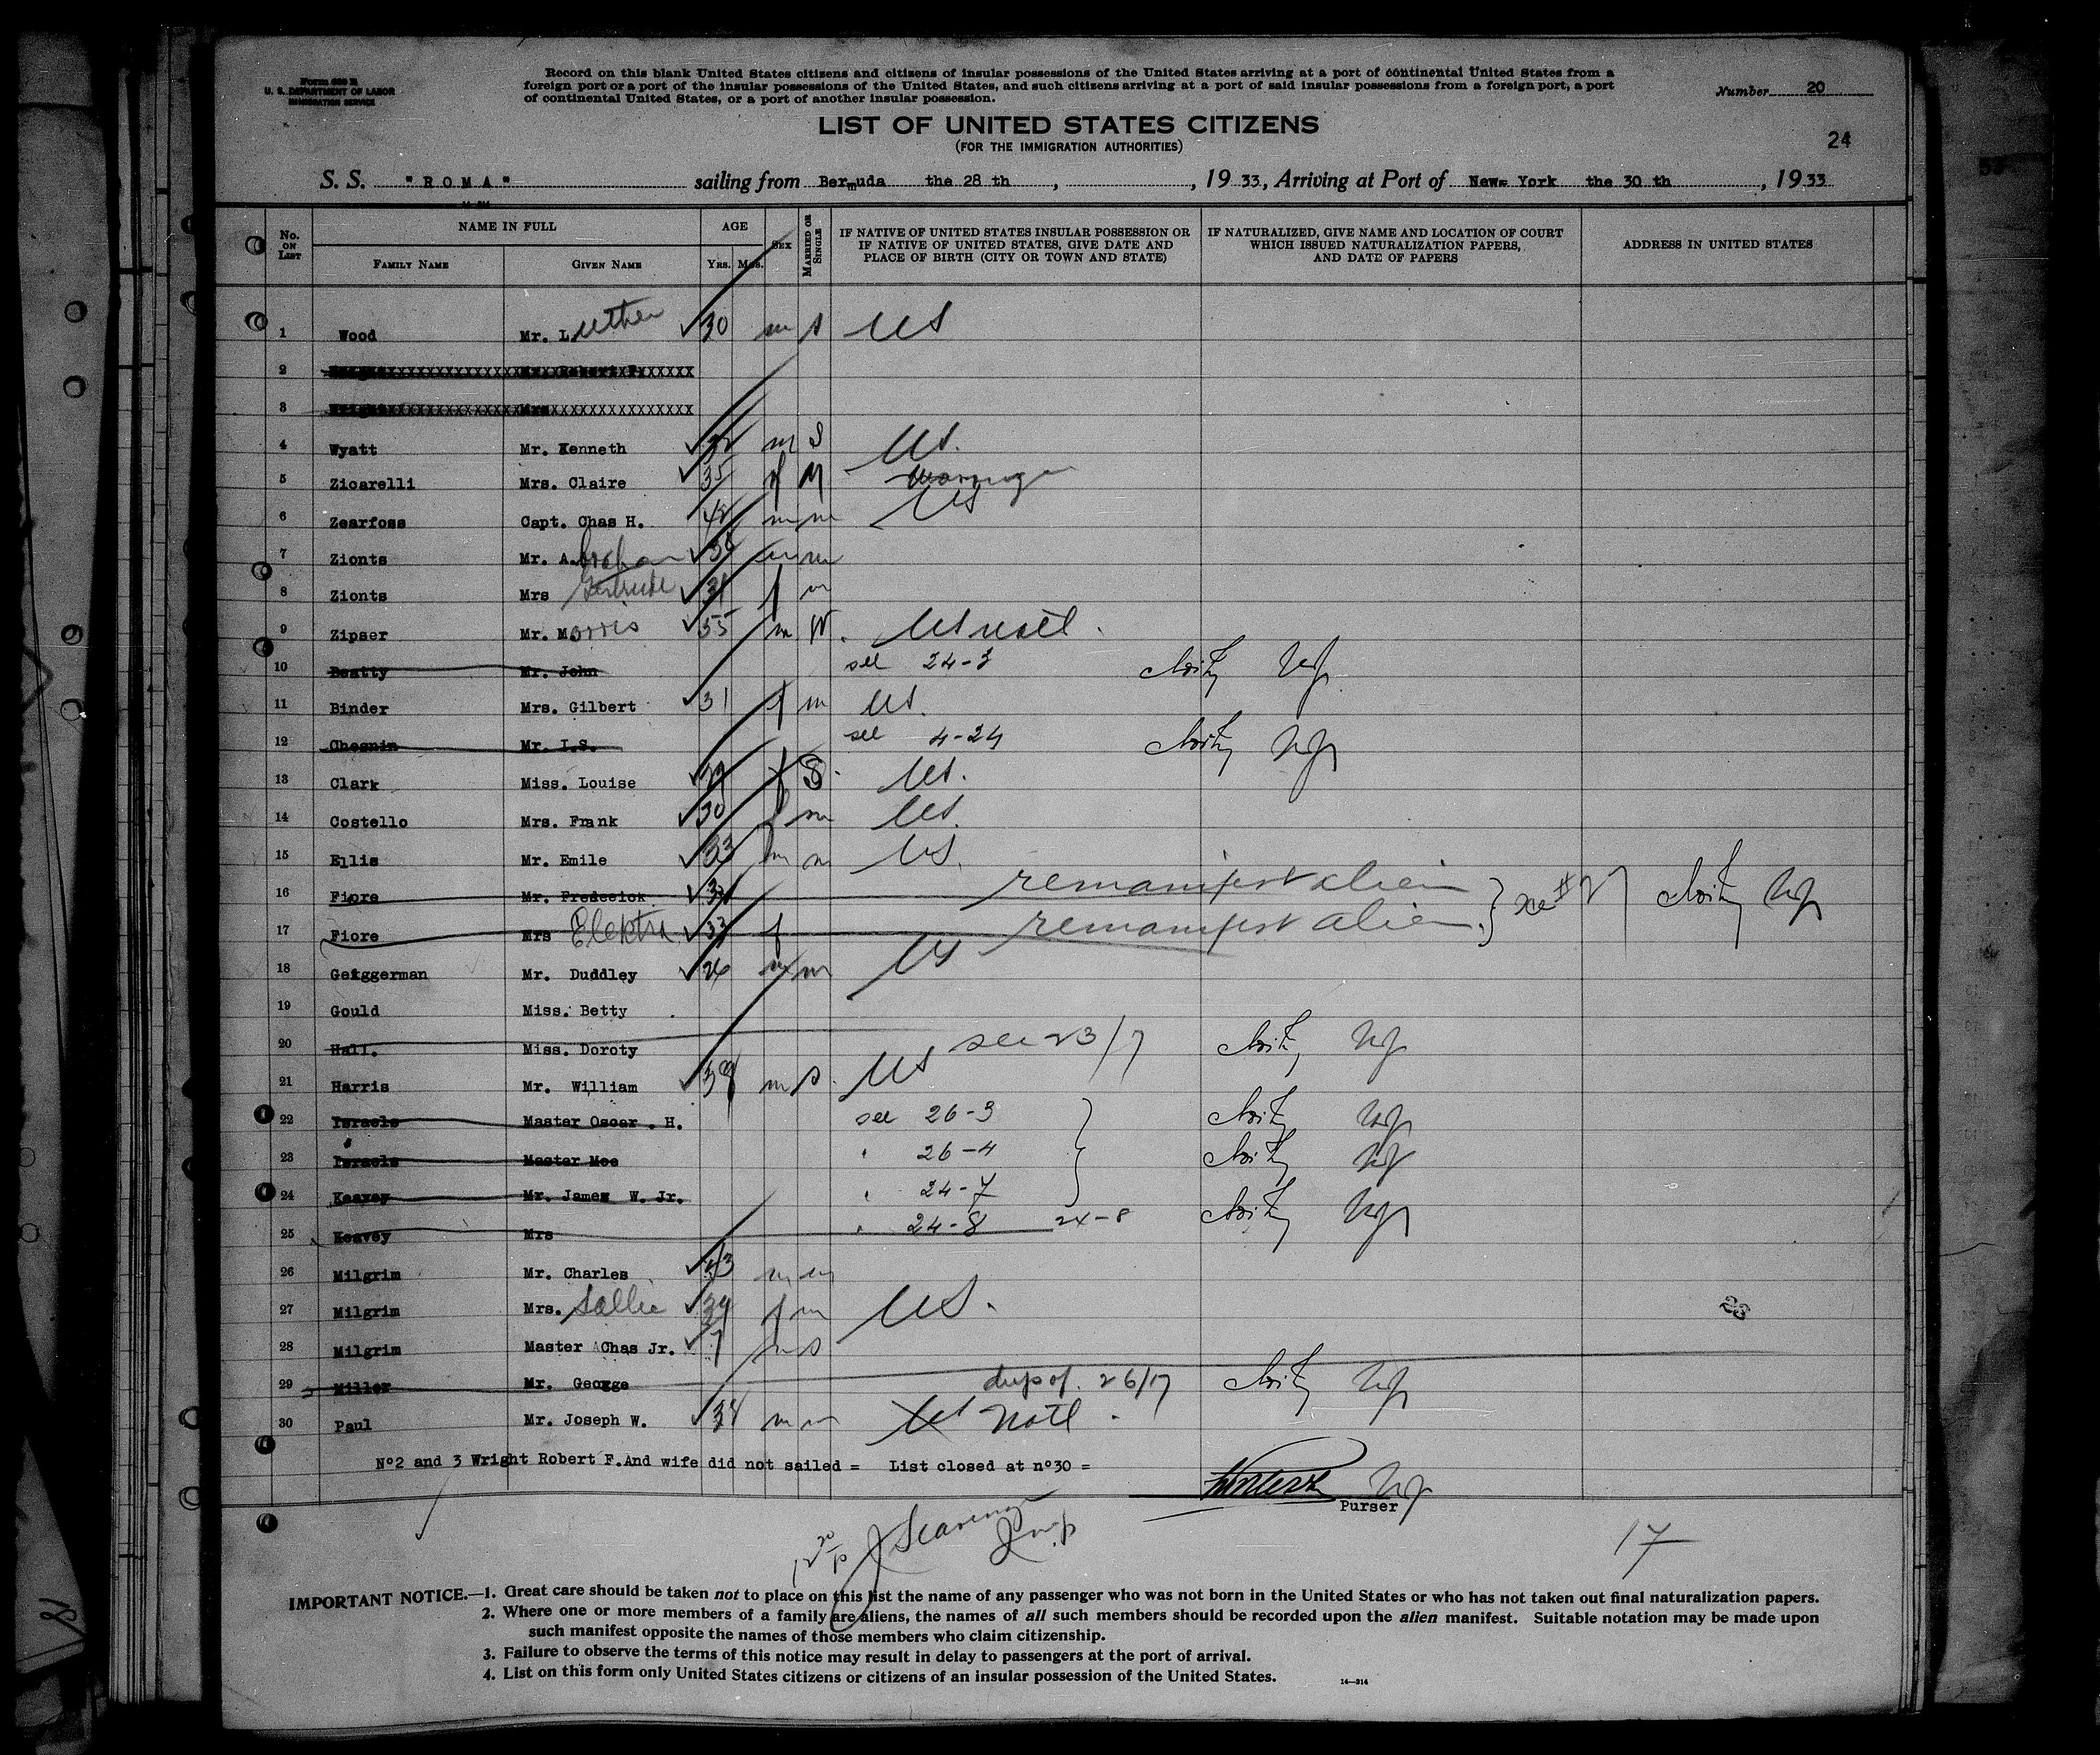 Form 630 B
U. S. DEPARTMENT OF LABOR
IMMIGRATION SERVICE
Record on this blank United States citizens and citizens of insular possessions of the United States arriving at a port of continental United States from a
foreign port or a port of the insular possessions of the United States, and such citizens arriving at a port of said insular possessions from a foreign port, a port
of continental United States, or a port of another insular possession.
Number 20
LIST OF UNITED STATES CITIZENS
(FOR THE IMMIGRATION AUTHORITIES)
24
S. S. "ROMA" sailing from Bermuda the 28 th , 1933, Arriving at Port of New York the 30 th , 1933
No. ON LIST NAME IN FULL AGE SEX MARRIED OR SINGLE IF NATIVE OF UNITED STATES INSULAR POSSESSION OR IF NATIVE OF UNITED STATES, GIVE DATE AND PLACE OF BIRTH (CITY OR TOWN AND STATE) IF NATURALIZED, GIVE NAME AND LOCATION OF COURT WHICH ISSUED NATURALIZATION PAPERS, AND DATE OF PAPERS ADDRESS IN UNITED STATES
FAMILY NAME GIVEN NAME YRS. MOS.
1 Wood Mr. Luther 30 m s US
2 Mr. Robert F
3 Wright Mrs
4 Wyatt Mr. Kenneth m S US.
5 Zicarelli Mrs. Claire 35 f M marriage
6 Zearfoss Capt. Chas H. m m US
7 Zionts Mr. Abraham m m
8 Zionts Mrs Gertrude 31 f m
9 Zipser Mr. Morris 55 m W. US natl.
10 Beatty Mr. John see 24-3
11 Binder Mrs. Gilbert 31 f m US.
12 Chesnin Mr. I.S. see 4-24
13 Clark Miss. Louise f S US.
14 Costello Mrs. Frank 30 f m US.
15 Ellis Mr. Emile 33 m m US.
16 Fiore Mr. Fredecick remanifest alien
17 Fiore Mrs Elektra 33 f remanifest alien
18 Geiggerman Mr. Duddley 26 m m US
19 Gould Miss. Betty
20 Hall. Miss. Doroty see 23/7
21 Harris Mr. William m s. US
22 Israels Master Oscar. H. see 26-3
23 Israels Master Moe " 26-4
24 Keavey Mr. James W. Jr. " 24-7
25 Keavey Mrs " 24-8 24-8
26 Milgrim Mr. Charles 43 m m
27 Milgrim Mrs. Sallie f m US.
28 Milgrim Master Chas Jr. 7 m s
29 Miller Mr. George dup of. 26/17
30 Paul Mr. Joseph W. m m natl.
Nº2 and 3 Wright Robert F.And wife did not sailed = List closed at nº30 =
Purser
17
IMPORTANT NOTICE.—1. Great care should be taken not to place on this list the name of any passenger who was not born in the United States or who has not taken out final naturalization papers.
2. Where one or more members of a family are aliens, the names of all such members should be recorded upon the alien manifest. Suitable notation may be made upon
such manifest opposite the names of those members who claim citizenship.
3. Failure to observe the terms of this notice may result in delay to passengers at the port of arrival.
4. List on this form only United States citizens or citizens of an insular possession of the United States.
14—314